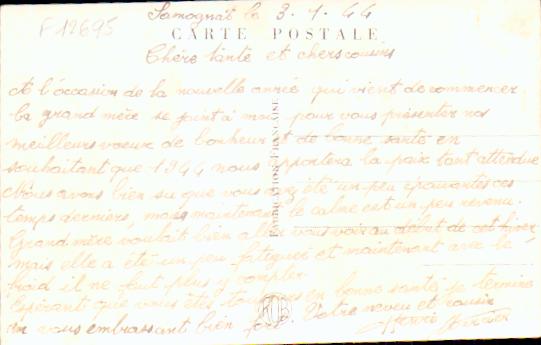 F 12695
Samognat le 3-1-44
CARTE POSTALE
Chère tante et chers cousins
A l'occasion de la nouvelle année qui vient de commencer
la grand mère se joint à moi pour vous présenter nos
meilleurs voeux de bonheur et de bonne santé en
souhaitant que 1944 nous apportera la paix tant attendue
Nous avons bien su que vous avez été un peu épouvantés ces
temps derniers, mais maintenant le calme est un peu revenu.
Grand mère voulait bien aller vous voir au début de cet hiver
mais elle a été un peu fatiguée et maintenant avec le
froid il ne faut plus y compter.
Espérant que vous êtes toujours en bonne santé, je termine
en vous embrassant bien fort. Votre neveu et cousin
FABRICATION FRANÇAISE